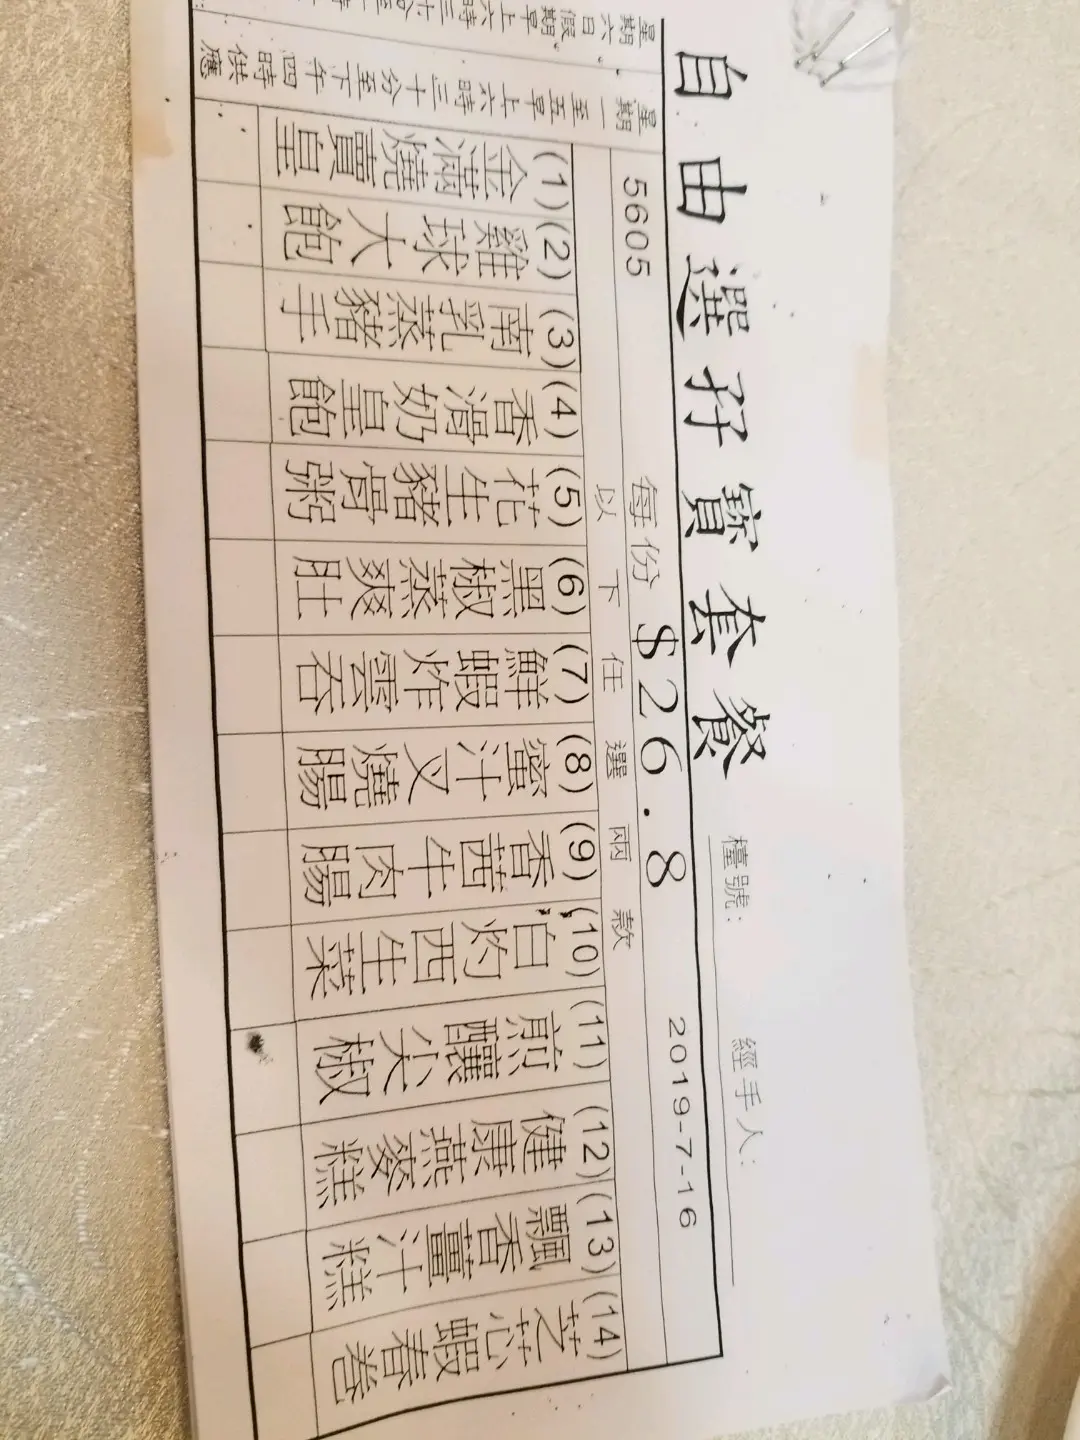 自由選孖寶套餐
檯號:
經手人:
5605
每份 $26.8
2019-7-16
以下任選兩款
(1) 金滿燒賣皇
(2) 雞球大飽
(3) 南乳蒸豬手
(4) 香滑奶皇飽
(5) 花生豬骨粥
(6) 黑椒蒸爽肚
(7) 鮮蝦炸雲吞
(8) 蜜汁叉燒腸
(9) 香茜牛肉腸
(10) 白灼西生菜
(11) 煎釀尖椒
(12) 健康燕麥糕
(13) 飄香薑汁糕
(14) 芝芯蝦春卷
星期一至五早上六時三十分至下午四時供應
星期六日假期早上六時三十分至